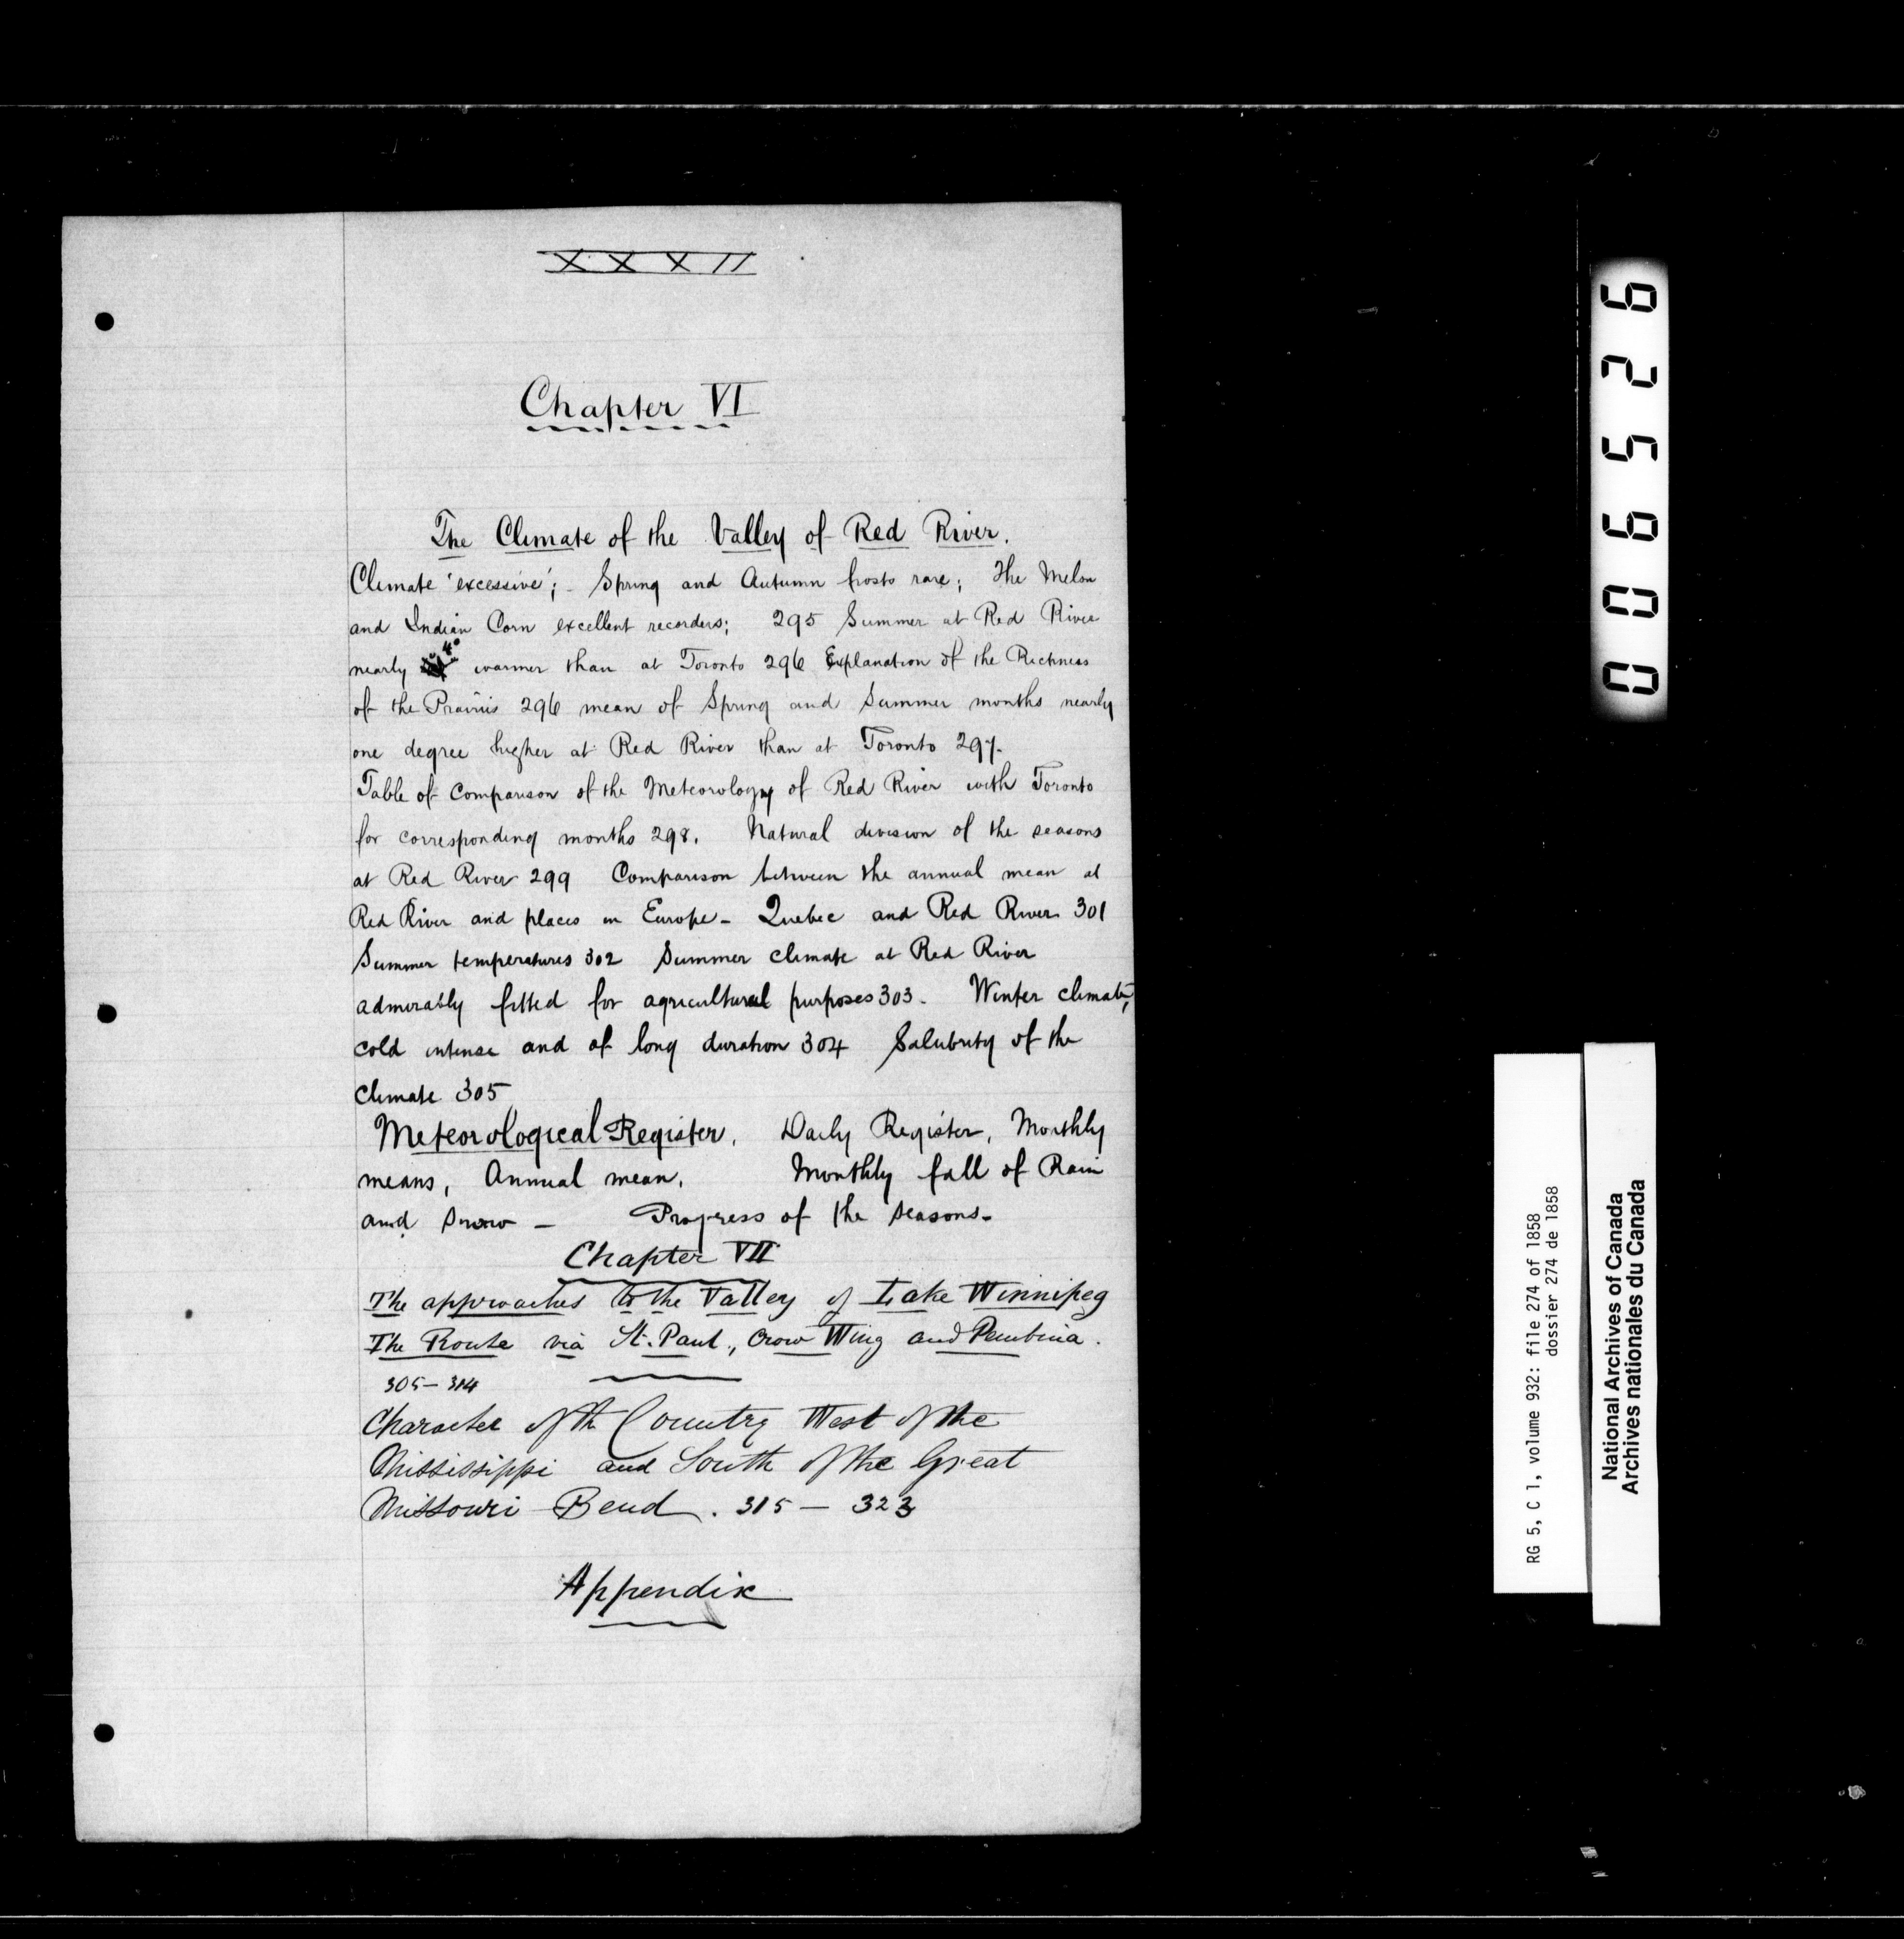 XXXII
Chapter VI
The Climate of the Valley of Red River.
Climate 'excessive'; - Spring and Autumn frosts rare; The Melon
and Indian Corn excellent recorders; 295 Summer at Red River
nearly 4° warmer than at Toronto 296 Explanation of the Richness
of the Prairies 296 mean of Spring and Summer months nearly
one degree higher at Red River than at Toronto 297.
Table of Comparison of the Meteorology of Red River with Toronto
for corresponding months 298. Natural division of the seasons
at Red River 299 Comparison between the annual mean at
Red River and places in Europe - Quebec and Red River 301
Summer temperatures 302 Summer climate at Red River
admirably fitted for agricultural purposes 303. Winter climate,
cold intense and of long duration 304 Salubrity of the
Climate 305
Meteorological Register. Daily Register, Monthly
means, Annual mean. Monthly fall of Rain
and Snow - Progress of the seasons-
Chapter VII
The approaches to the Valley of Lake Winnipeg
The Route via St. Paul., Crow Wing and Pembina.
305 - 314
Character of the Country West of the
Mississippi and South of the Great
Missouri Bend. 315 - 323
Appendix
006526
RG 5, C 1, volume 932: file 274 of 1858
dossier 274 de 1858
National Archives of Canada
Archives nationales du Canada